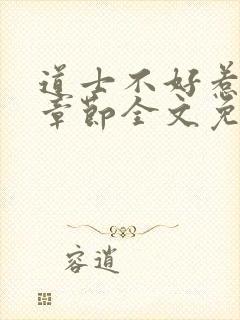 道士不好惹
章节全文免
容逍